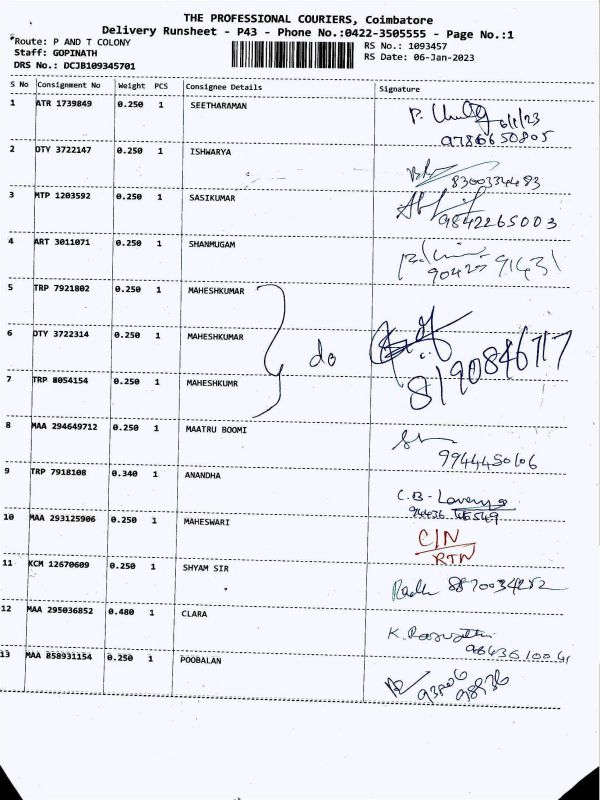 THE PROFESSIONAL COURIERS, Coimbatore
Delivery Runsheet - P43 - Phone No.:0422-3505555 - Page No.:1
*Route: P AND T COLONY
RS No.: 1093457
Staff: GOPINATH
RS Date: 06-Jan-2023
DRS No.: DCJB109345701
S No Consignment No Weight PCS Consignee Details Signature
1 ATR 1739849 0.250 1 SEETHARAMAN 6/1/23
2 DTY 3722147 0.250 1 ISHWARYA 8300334483
3 MTP 1203592 0.250 1 SASIKUMAR 9842265003
4 ART 3011071 0.250 1 SHANMUGAM
5 TRP 7921802 0.250 1 MAHESHKUMAR
6 DTY 3722314 0.250 1 MAHESHKUMAR do
7 TRP 8054154 0.250 1 MAHESHKUMR
8 MAA 294649712 0.250 1 MAATRU BOOMI 9944450106
9 TRP 7918108 0.340 1 ANANDHA C.B-
10 MAA 293125906 0.250 1 MAHESWARI C/N
RTN
11 KCM 12670609 0.250 1 SHYAM SIR
12 MAA 295036852 0.480 1 CLARA
13 MAA 858931154 0.250 1 POOBALAN